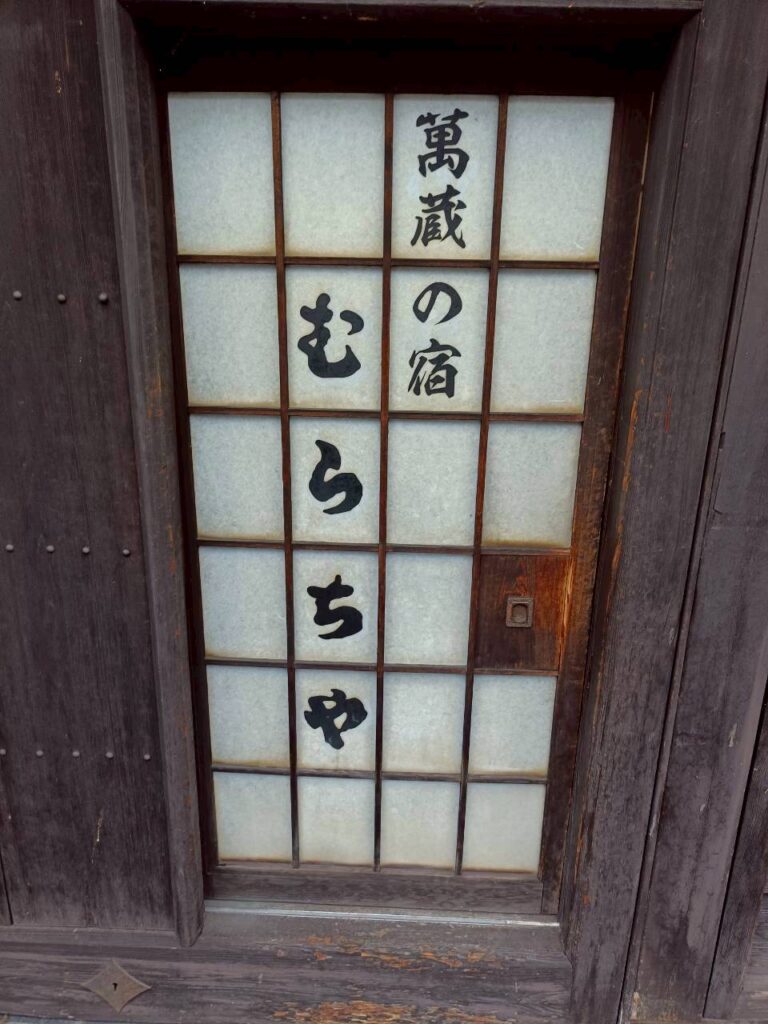 萬蔵の宿
むらちや